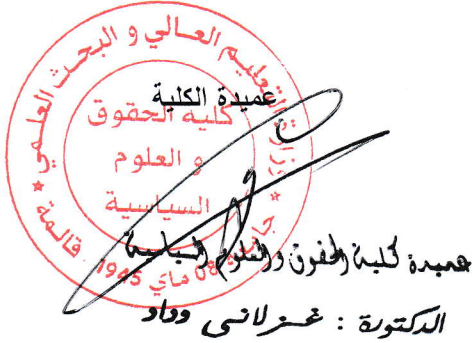 وزارة التعليم العالي و البحث العلمي
جامعة 08 ماي 1945 قالمة
عميدة الكلية
كلية الحقوق
و العلوم
السياسية
عميدة كلية الحقوق والعلوم السياسية
الدكتورة : غزلاني وداد